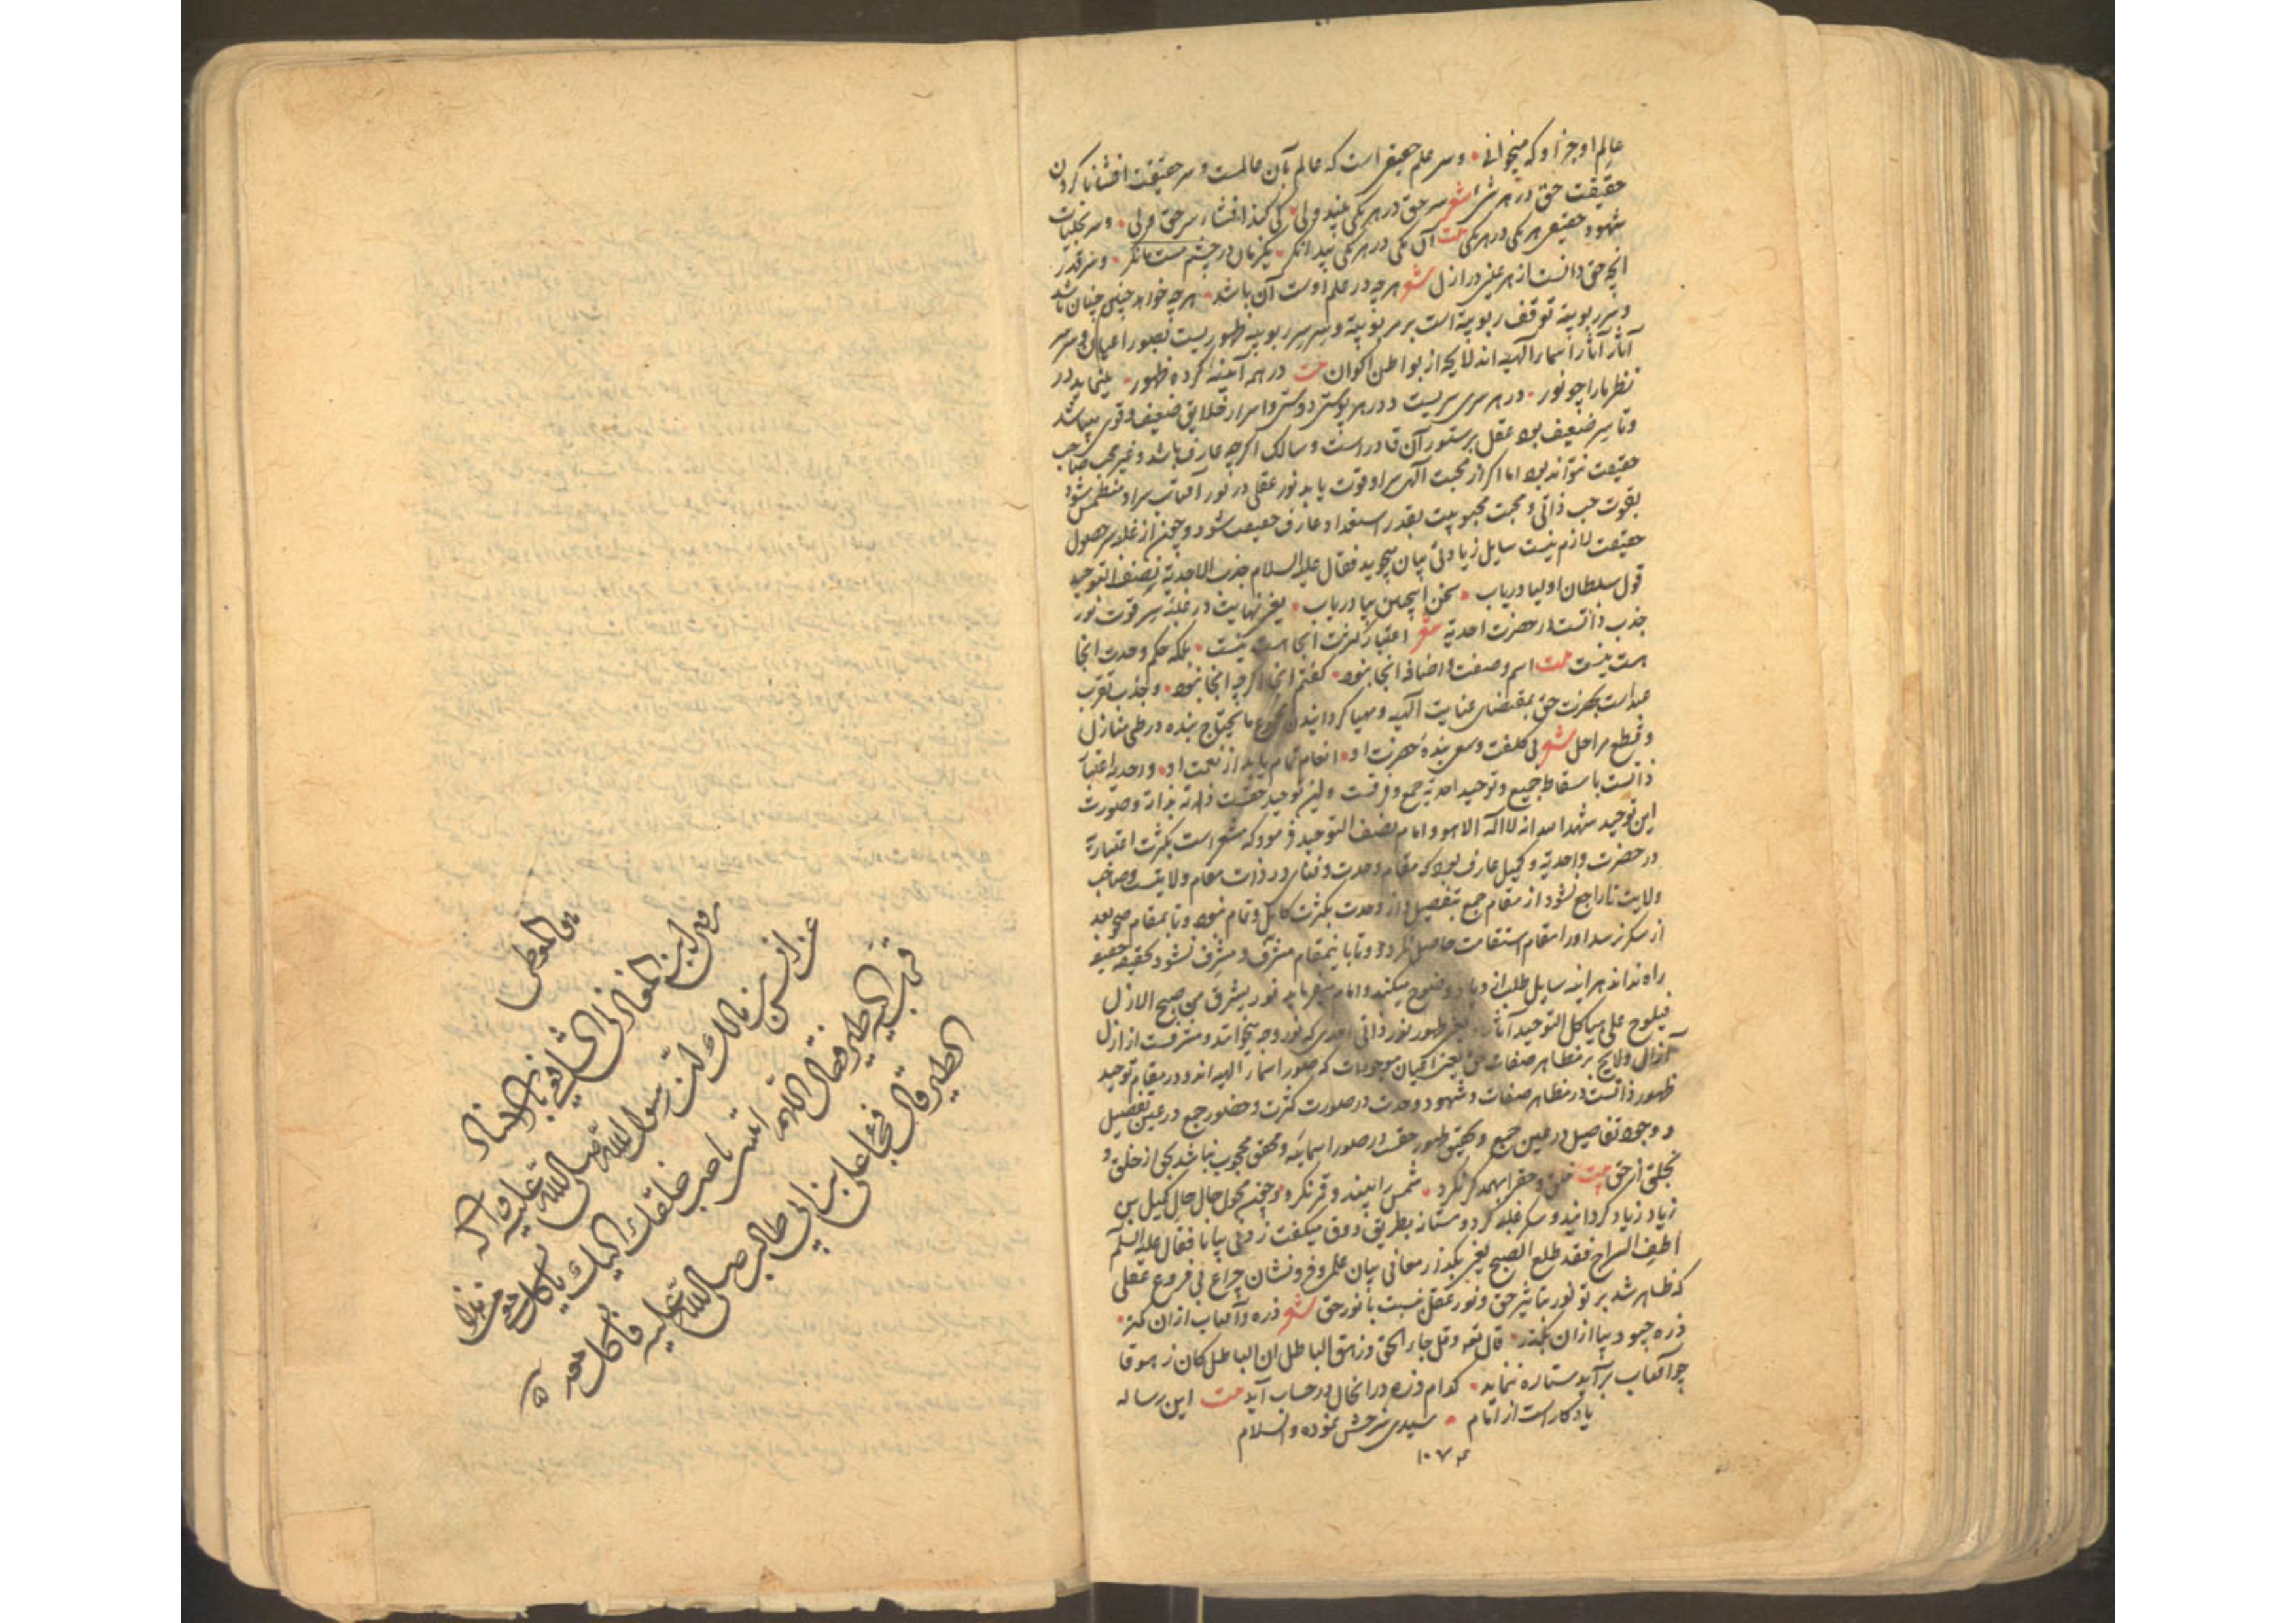 عالم او جز او که میخوانی وسر علم حقیقی است که عالم بآن عالمست و سر حقیقت افشا ناکردن
حقیقت حق در هر شئ شعر سر حق در هر یکی بیند ولی کی کند افشاء سر حق ولی وسر تجلیات
شهود حقیقی هر یکی در هر یکی بیت آن یکی در هر یکی پیدا نگر یکزمان در چشم مست ما نگر وسر قدر
انچه حق دانست از هر عینی در ازل شعر هر چه در علم اوست آن باشد هر چه خواهد چنین چنان باشد
وسر ربوبیة توقف ربوبیة است بر مربوبیة وسر سر ربوبیة ظهور بست بصور اعیان وسر
آثار آثار اسماء الهیه اند لایحه از بواطن اکوان بیت در همه آینه کرده ظهور مینماید در
نظر ما را چو نور در هر سری سریست ودر هر پوستی دوستی واسرار خلایق ضعیف وقوی میباشد
وتا سر ضعیف بود عقل بر ستور آن قادر است وسالک اگر چه عارف باشد وغیر محب صاحب
حقیقت نتواند بود اما اگر از محبت الهی سر او قوت یابد نور عقلی در نور آفتاب سر او منطمس شود
بقوت حب ذاتی ومحبت محبوبیت بقدر استعداد عارف حقیقت شود وچون از غلبه سر حصول
حقیقت لازم نیست سایل زیادتی بیان میجوید فقال علیه السلام جذب الاحدیة بصفة التوحید
قول سلطان اولیا دریاب سخن اینچنین بیا دریاب یعنی نهایت در غلبه سر قوت نور
جذب ذاتست از حضرت احدیة شعر اعتبار کثرت انجا هست نیست بلکه حکم وحدت انجا
هست نیست بیت اسم وصفت واضافه انجا نبود گفتم انجا اگر چه انجا نبود وجذب تقرب
عبد است بحضرت حق بمقتضای عنایت الهیه ومهیا گردانیدن مجموع ما یحتاج بنده در طی منازل
وقطع مراحل شعر بی کلفت وسعی بنده حضرت او انعام تمام یابد از نعمت او واحدیه اعتبار
ذاتست با سقاط جمیع وتوحید احدیة جمع وفرقست واین توحید حقست ذاته بذاته وصورت
این توحید شهد الله انه لا اله الا هو وامام بصفة التوحید فرمود که مشعر است بکثرت اعتباریة
در حضرت واحدیة وکمیل عارف بود که مقام وحدت وفنای در ذات مقام ولایتست وصاحب
ولایت تا راجع نشود از مقام جمع بتفصیل واز وحدت بکثرت کامل وتمام نبود وتا بمقام صحو بعد
از سکر نرسد او را مقام استقامت حاصل نگردد وتا باینمقام مشرف ومشرف نشود بحقیقة حقیقة
راه نداند هر اینه سایل طلب میکند وامام میفرماید نور یشرق من صبح الازل
فیلوح علی هیاکل التوحید آثاره یعنی ظهور نور ذاتی احدی که نور وجه میخوانند ومشرقست از ازل
آزال ولایح بر مظاهر صفات حق یعنی اعیان موجودات که صور اسماء الهیه اند ودر مقام توحید
ظهور ذاتست در مظاهر صفات وشهود وحدت در صورت کثرت وحضور جمع در عین تفصیل
ووجود تفاصیل در عین جمع وتحقیق ظهور حقست در صور اسمائیه ومحقق محجوب نباشد بحق از خلق و
بخلق از حق بیت خلق وحق را بهمدگر نگرد شمس را بیند وقمر نگرد وچون محول حال حال کمیل بن
زیاد زیاد گردانید وسکر غلبه کرد ومستانه بطریق ذوق میگفت زدنی بیانا فقال علیه السلم
اطف السراج فقد طلع الصبح یعنی بگذر از معانی بیان علم وفرو نشان چراغ بی فروغ عقلی
که ظاهر شد پرتو نور بتاثیر حق ونور عقل نسبت با نور حق شعر ذره وآفتاب ازان کمتر
ذره چبود بیا ازان بگذر قال تعه وقل جاء الحق وزهق الباطل ان الباطل کان زهوقا
چو آفتاب برآید ستاره ننماید کدام ذره در انحال در حساب آید بیت این رساله
یادکار است از انام سیدی شرحش نموده والسلام
۱۰۷۴
روی ابن المغازلی الشافعی بالاسناد
عن انس بن مالک رسول الله صلی الله علیه واله
قرب الیه الطیر فقال اللهم ائتنی باحب خلقک الیک یاکل معی
الطیر قال فجاء علی بن ابی طالب صلی الله علیه فاکل معه